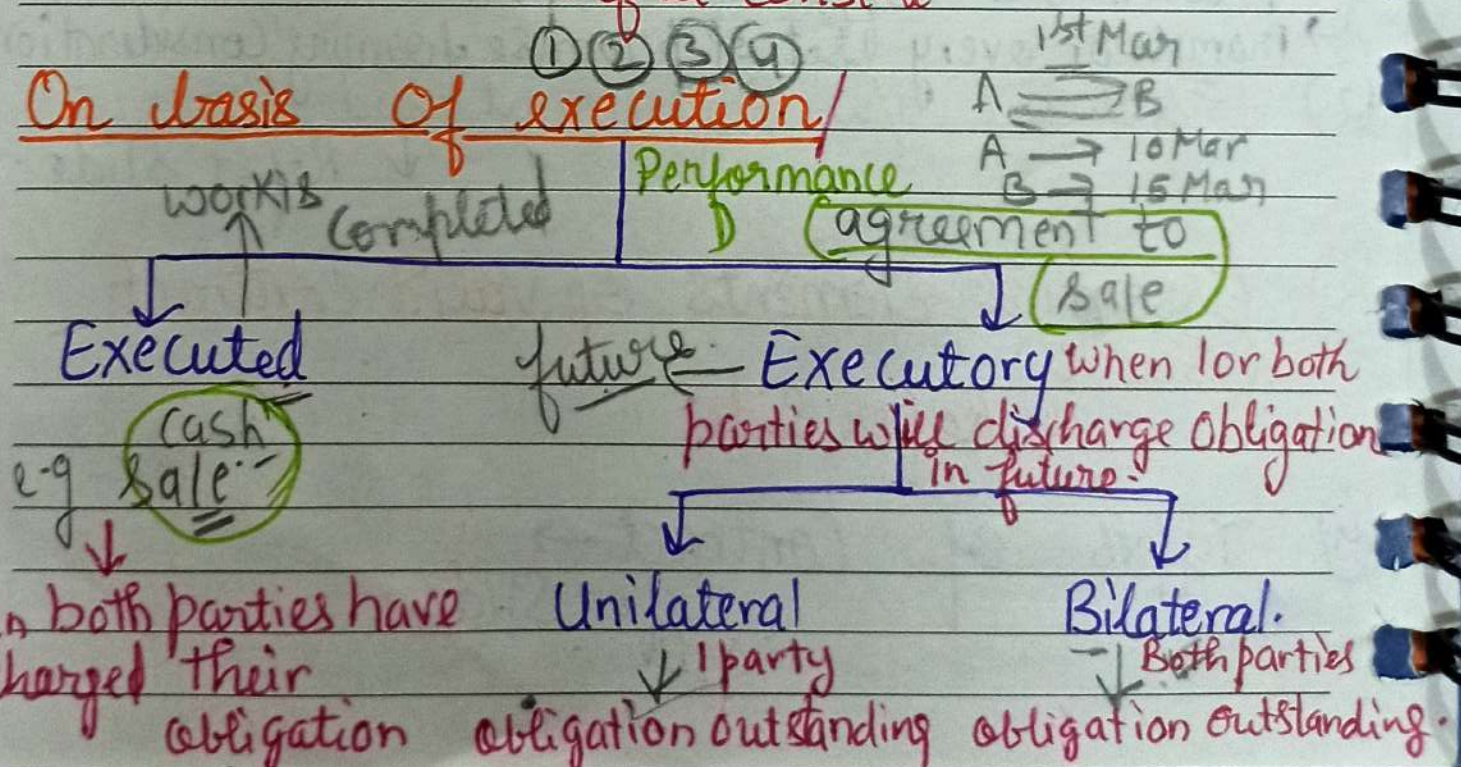 ① ② ③ ④
1st Mar
A B
On basis Of execution /
A → 10 Mar
Performance
B → 15 Mar
work is completed
agreement to
sale
Executed
future ← Executory when 1 or both
parties will discharge obligation
in future.
cash
e-g sale
both parties have
harged their
obligation
Unilateral
↓ 1 party
obligation outstanding
Bilateral.
↓ Both parties
obligation outstanding.